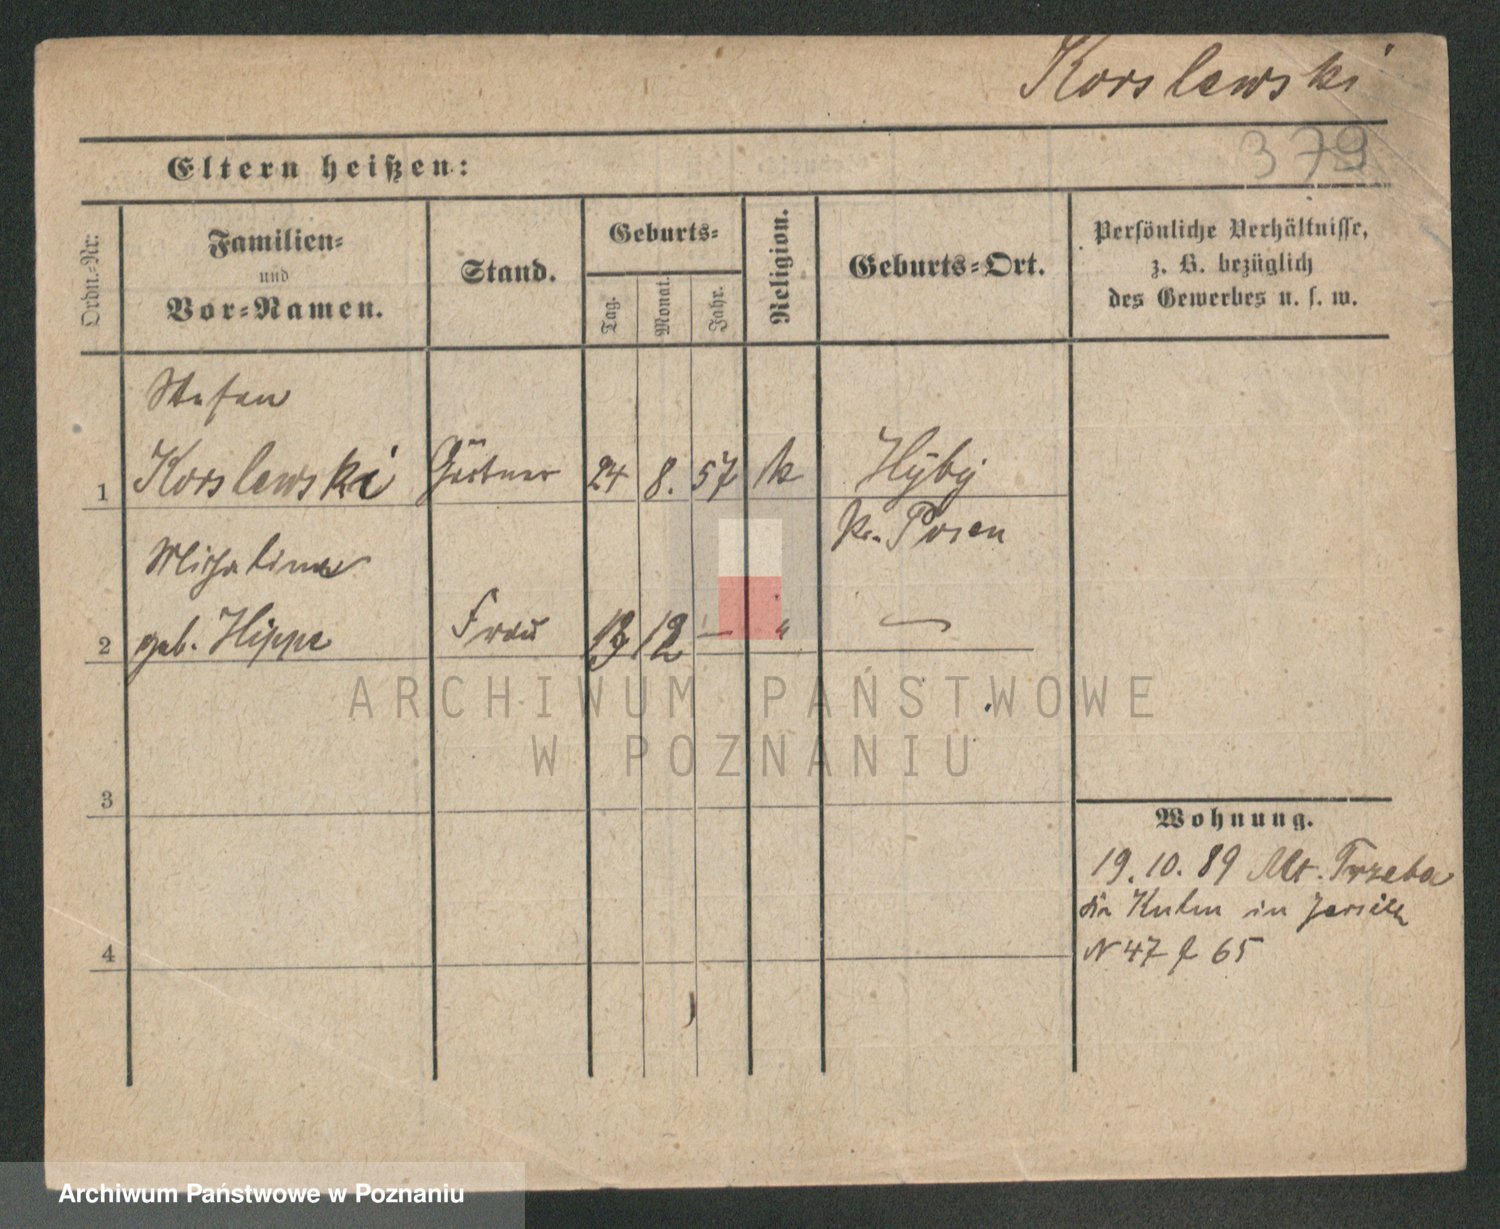 Korslewski
379
Eltern heißen:
Ordn.-Nr.
Familien-
und
Vor-Namen.
Stand.
Geburts-
Tag.
Monat.
Jahr.
Religion.
Geburts-Ort.
Persönliche Verhältnisse,
z. B. bezüglich
des Gewerbes u. s. w.
Stefan
1 Korslewski Gärtner 24 8. 57 k Hyby
Kr. Posen
Michalina
2 geb. Hippe Frau 12 — "
ARCHIWUM PAŃSTWOWE
W POZNANIU
3
Wohnung.
19. 10. 89 Trzeba
in
4
N 47 65
Archiwum Państwowe w Poznaniu